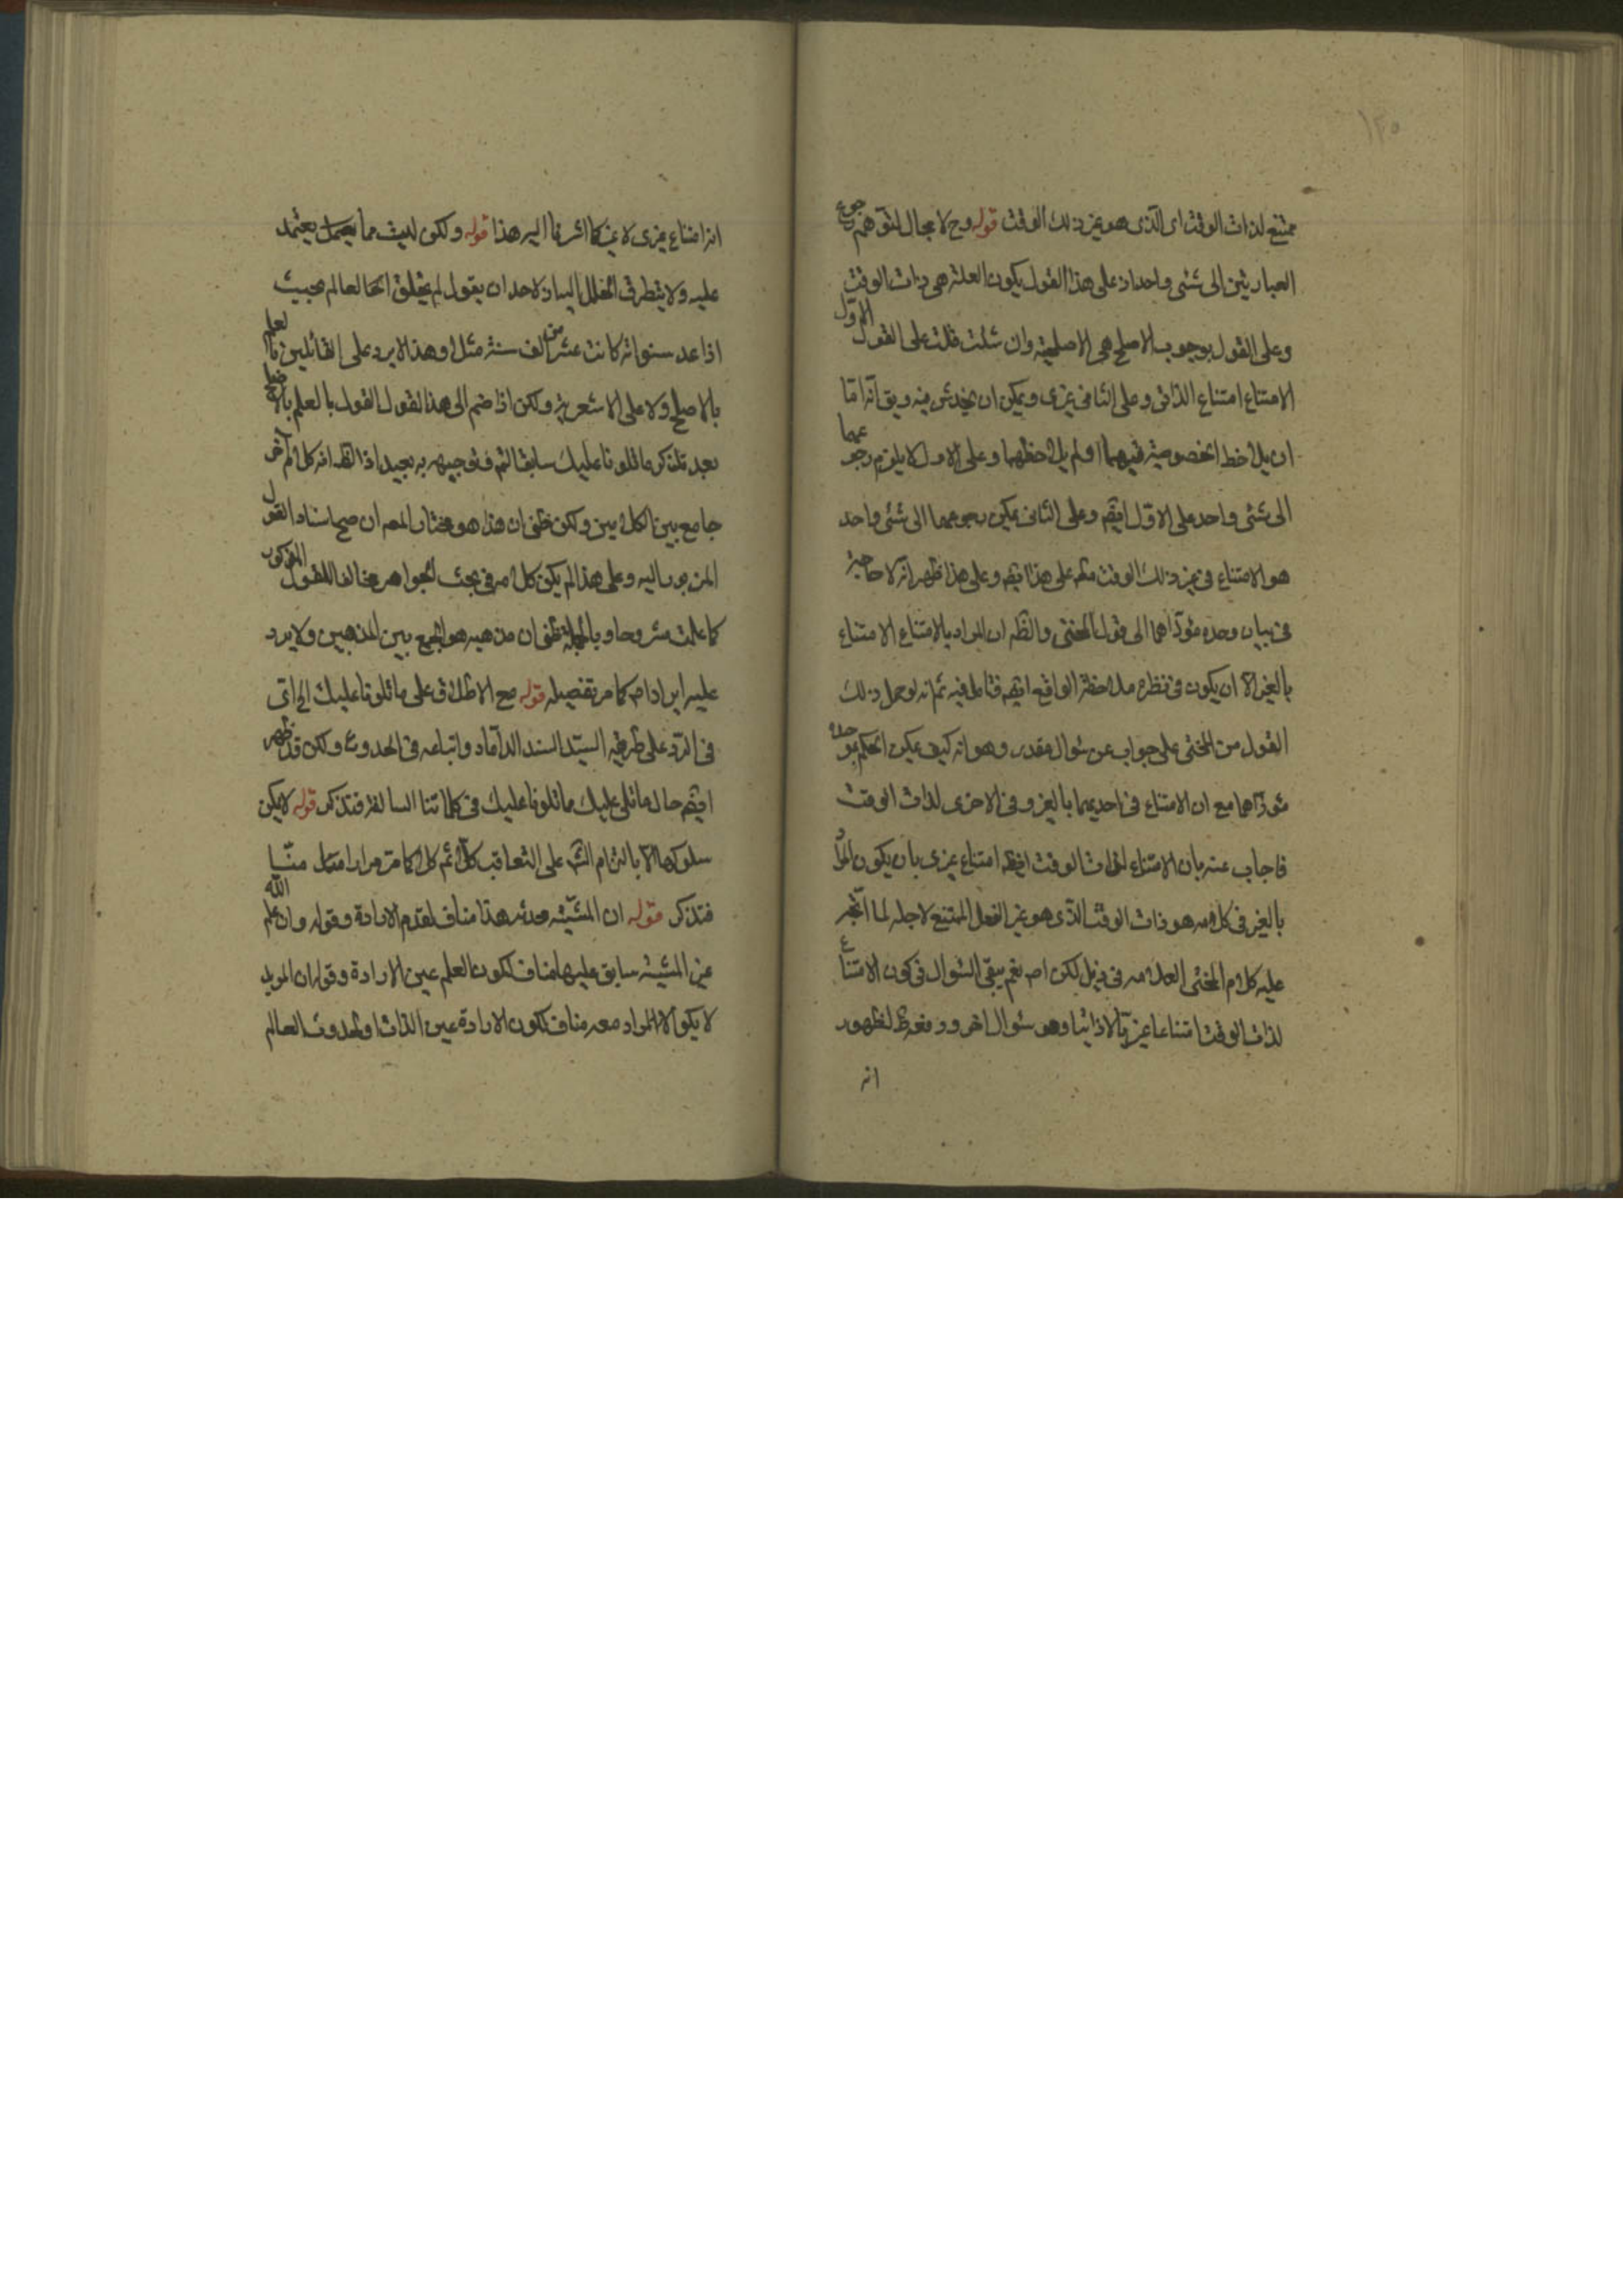 ١٢٥
ممتنع لذات الوقت اى الذى هو غير ذلك الوقت قوله وح لا مجال لتوهم رجوع
العبارتين الى شئى واحد اذ على هذا القول يكون العلة هى ذات الوقت
وعلى القول بوجوب الاصلح هى الاصلحية وان شئت قلت على القول الاول
الامتناع امتناع الذاتى وعلى الثانى غيرى ويمكن ان يخدش فيه ويق انه اما
ان يلاحظ الخصوصية فيهما او لم يلاحظهما وعلى الاول لا يلزم رجوعهما
الى شئى واحد على الاول ايضم وعلى الثانى يمكن رجوعهما الى شئى واحد
هو الامتناع فى غير ذلك الوقت على هذا ايضم وعلى هذا ظهر انه لا حاجة
فى بيان وحده مؤداهما الى قول المحشى والظم ان المراد بالامتناع الامتناع
بالغير الا ان يكون فى نظره ملاحظة الواقع ايضم فتامل فيه ثم انه لو حمل ذلك
القول من المحشى على جواب عن سؤال مقدر وهو انه كيف يمكن الحكم بوحده
مؤداهما مع ان الامتناع فى احديهما بالغير وفى الاخرى لذات الوقت
فاجاب عنه بان الامتناع لذات الوقت ايضم امتناع غيرى بان يكون المراد
بالغير فى كلامه هو ذات الوقت الذى هو غير الفعل الممتنع لاجله لما اتجر
عليه كلام المحشى العلامه فى ذيل لكن اه نعم يبقى السؤال فى كون الامتناع
لذات الوقت امتناعا غيريا لا ذاتيا وهو سؤال اخر ودفعه ظ لظهور
انه
انه امتناع غيرى لا غير كما اشرنا اليه هذا قوله ولكن ليت مما يعمل يعتمد
عليه ولا يتطرق الخلل اليه اذ لاحد ان يقول لم يخلق الله العالم بحيث
اذا عد سنواته كانت عشرين الف سنة مثلا وهذا لا يرد على القائلين بالعلم
بالاصلح ولا على الاشعرية ولكن اذا ضم الى هذا القول القول بالعلم بالاصلح
بعد تذكر ما تلونا عليك سابقا لتم فتوجيهه به بعيد اذ الظ انه كلام اخر
جامع بين الكلامين ولكن ظنى ان هذا هو مختار المص ان صح اسناد القول
المزبور اليه وعلى هذا لم يكن كلامه فى بحث الجواهر مخالفا للقول المذكور
كما علمت مشروحا وبالجملة ظنى ان مذهبه هو الجمع بين المذهبين ولا يرد
عليه ايراد اه كما مر تفصيله قوله مع الاطلاق على ما تلونا عليك اى اتى
فى الرد على طريقه السيد السند الداماد واتباعه فى الحدوث ولكن قد ظهر
ايضم حال ما تلى عليك مما تلونا عليك فى كلماتنا السالفة فتذكر قوله لا يمكن
سلوكها الا بالتزام على التعاقب كلا ثم كلا كما مر مرارا منا
فتذكر قوله ان المشية محدثه هذا مناف لقدم الارادة وقوله وان علم الله
غير المشية سابق عليها مناف لكون العلم عين الارادة وقوله ان المريد
لا يكون الا المراد معه مناف لكون الارادة عين الذات او لحدوث العالم